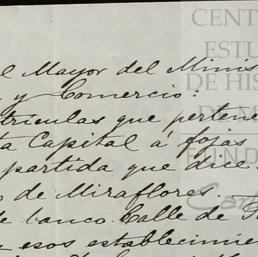 CENT
ESTU
DE HIS
DE M
FUND
l Mayor del Minis
y Comercio:
trículas que pertene
ta Capital á fojas
partida que dice
o de Miraflores.
de banco. Calle de
y esos establecimie